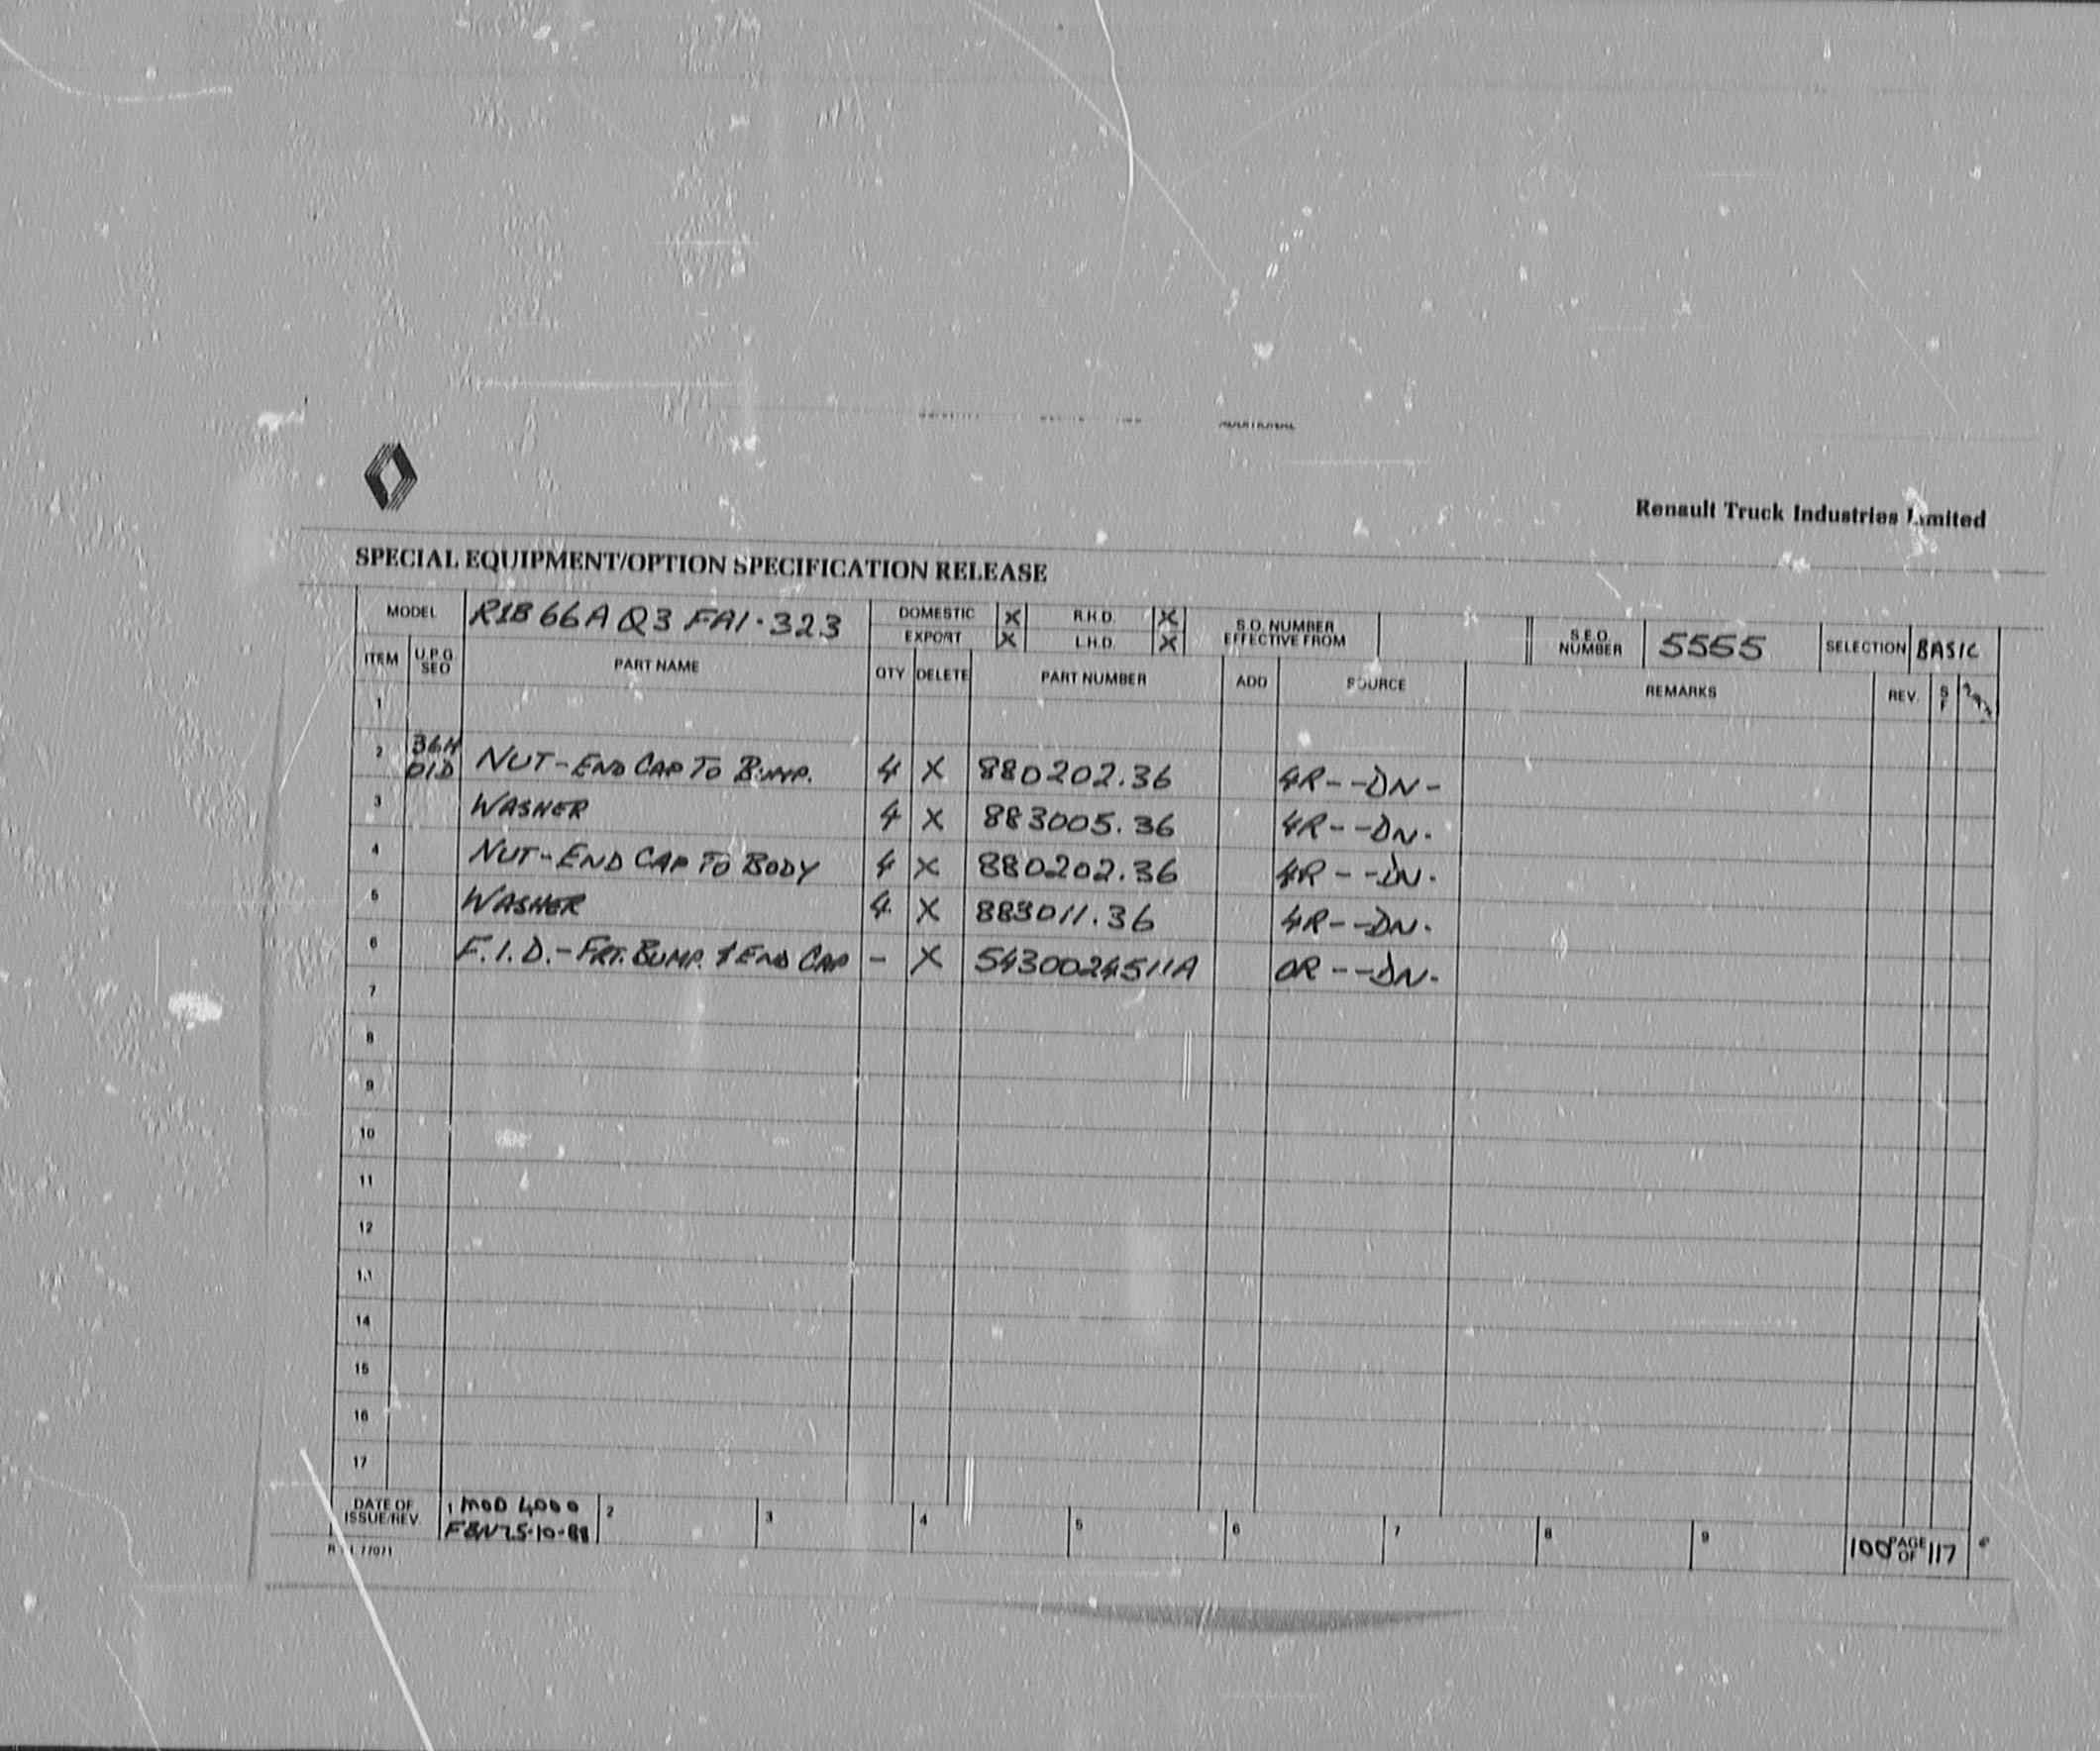 Renault Truck Industries Limited
SPECIAL EQUIPMENT/OPTION SPECIFICATION RELEASE
MODEL R1B66A Q3 FA1.323 DOMESTIC X R.H.D. X S.O. NUMBER EFFECTIVE FROM S.E.O. NUMBER 5555 SELECTION BASIC
EXPORT X L.H.D. X
ITEM U.P.G. SEO PART NAME QTY DELETE PART NUMBER ADD SOURCE REMARKS REV. S F
1
2 36H 01D NUT-END CAP TO BUMP. 4 X 880202.36 4R--DN-
3 WASHER 4 X 883005.36 4R--DN.
4 NUT-END CAP TO BODY 4 X 880202.36 4R--DN.
5 WASHER 4 X 883011.36 4R--DN.
6 F.I.D.-FRT. BUMP. & END CAP - X 5430024511A 0R--DN.
7
8
9
10
11
12
13
14
15
16
17
DATE OF ISSUE/REV. 1 MOD 4000 2 3 4 5 6 7 8 9 100 PAGE OF 117
77071